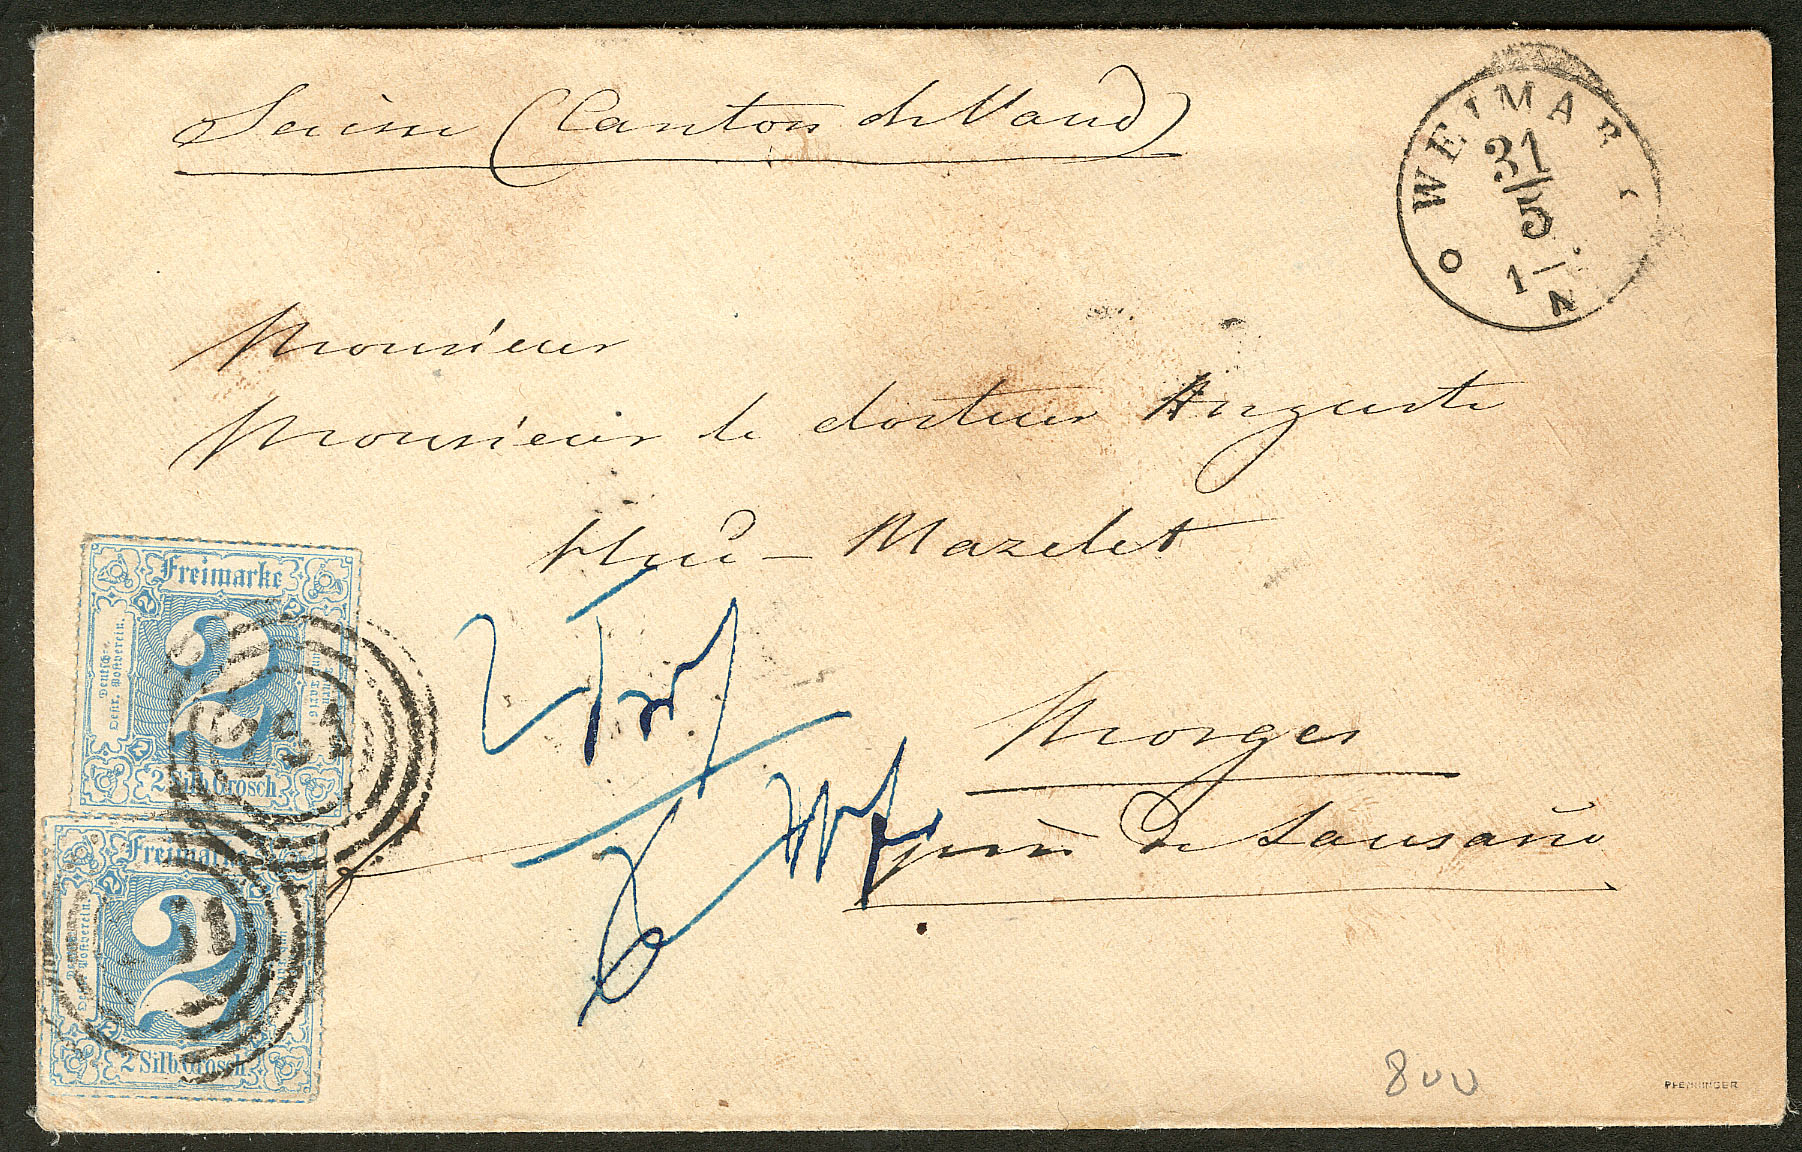 Suisse (Canton de Vaud)
WEIMAR
31
5
1 – N
Monsieur
Monsieur le docteur Auguste
Mazelet
Freimarke
2
Deutsch-
Oestr. Postverein.
2
2 Silb. Grosch
351
Morges
près de Lausanne
Freimarke
2
2 Silb. Grosch
51
800
PFENNINGER